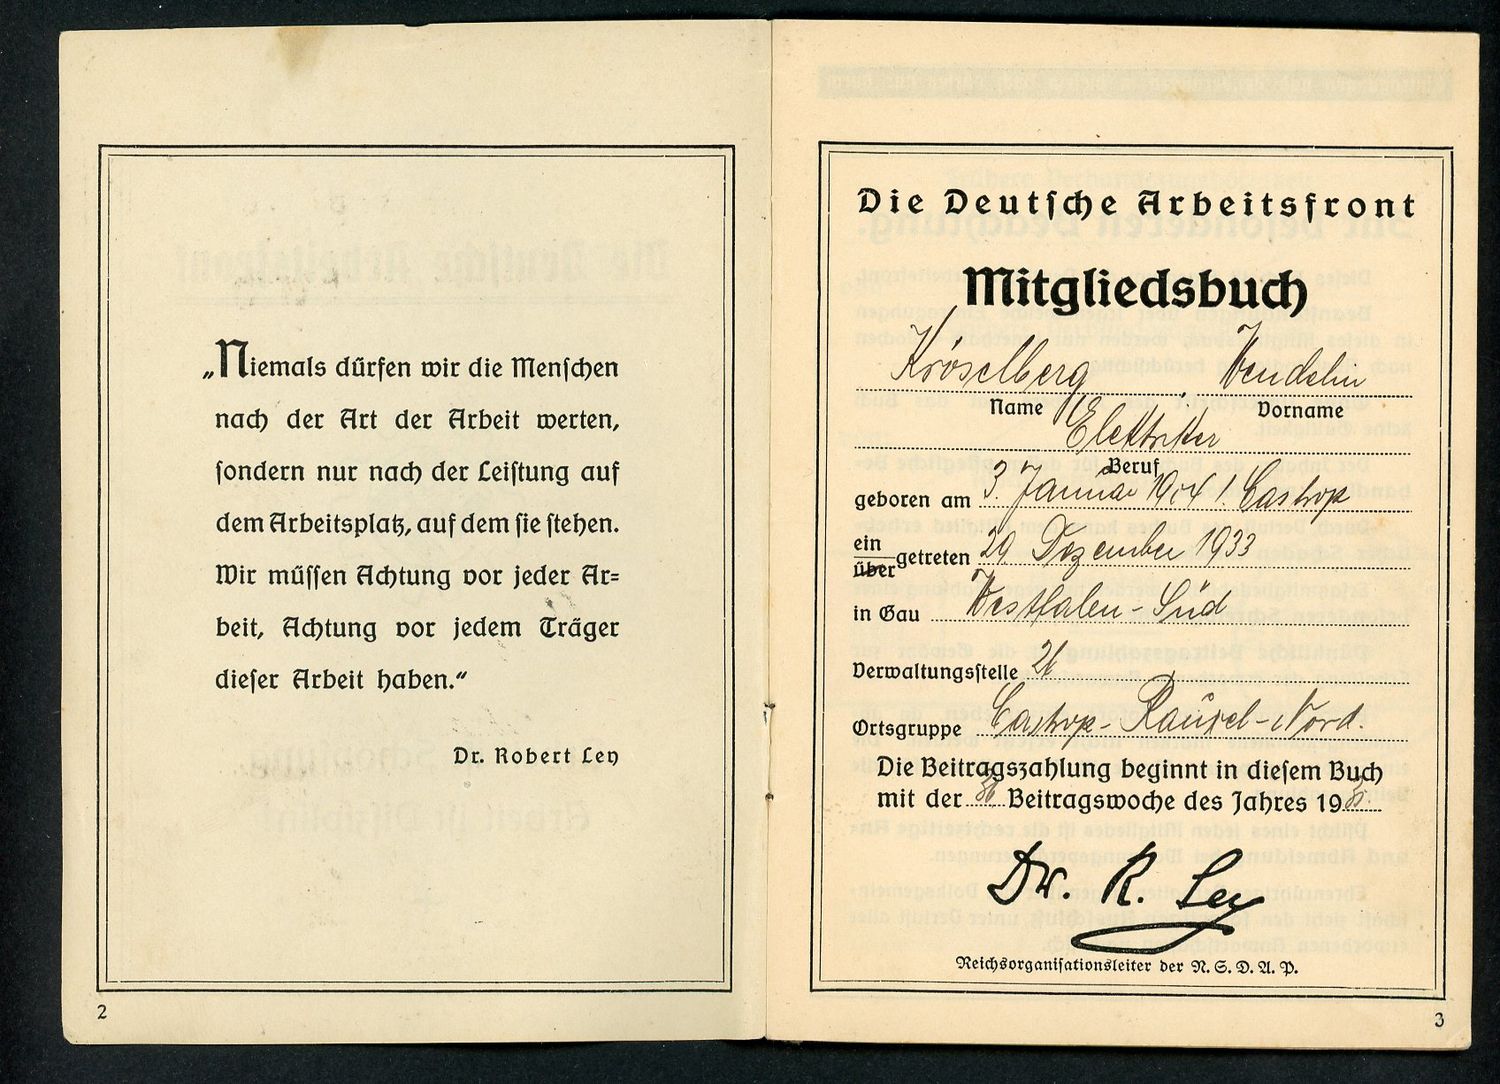 „Niemals dürfen wir die Menschen
nach der Art der Arbeit werten,
sondern nur nach der Leistung auf
dem Arbeitsplatz, auf dem sie stehen.
Wir müssen Achtung vor jeder Ar=
beit, Achtung vor jedem Träger
dieser Arbeit haben.“
Dr. Robert Ley
2
Die Deutsche Arbeitsfront
Mitgliedsbuch
Kröselberg Wendelin
Name Vorname
Elektriker
Beruf
geboren am 3. Januar 1904 Castrop
ein
über getreten 29 Dezember 1933
in Gau Westfalen-Süd
Verwaltungsstelle
Ortsgruppe Castrop-Rauxel-Nord.
Die Beitragszahlung beginnt in diesem Buch
mit der Beitragswoche des Jahres 19
Dr. R. Ley
Reichsorganisationsleiter der N. S. D. A. P.
3